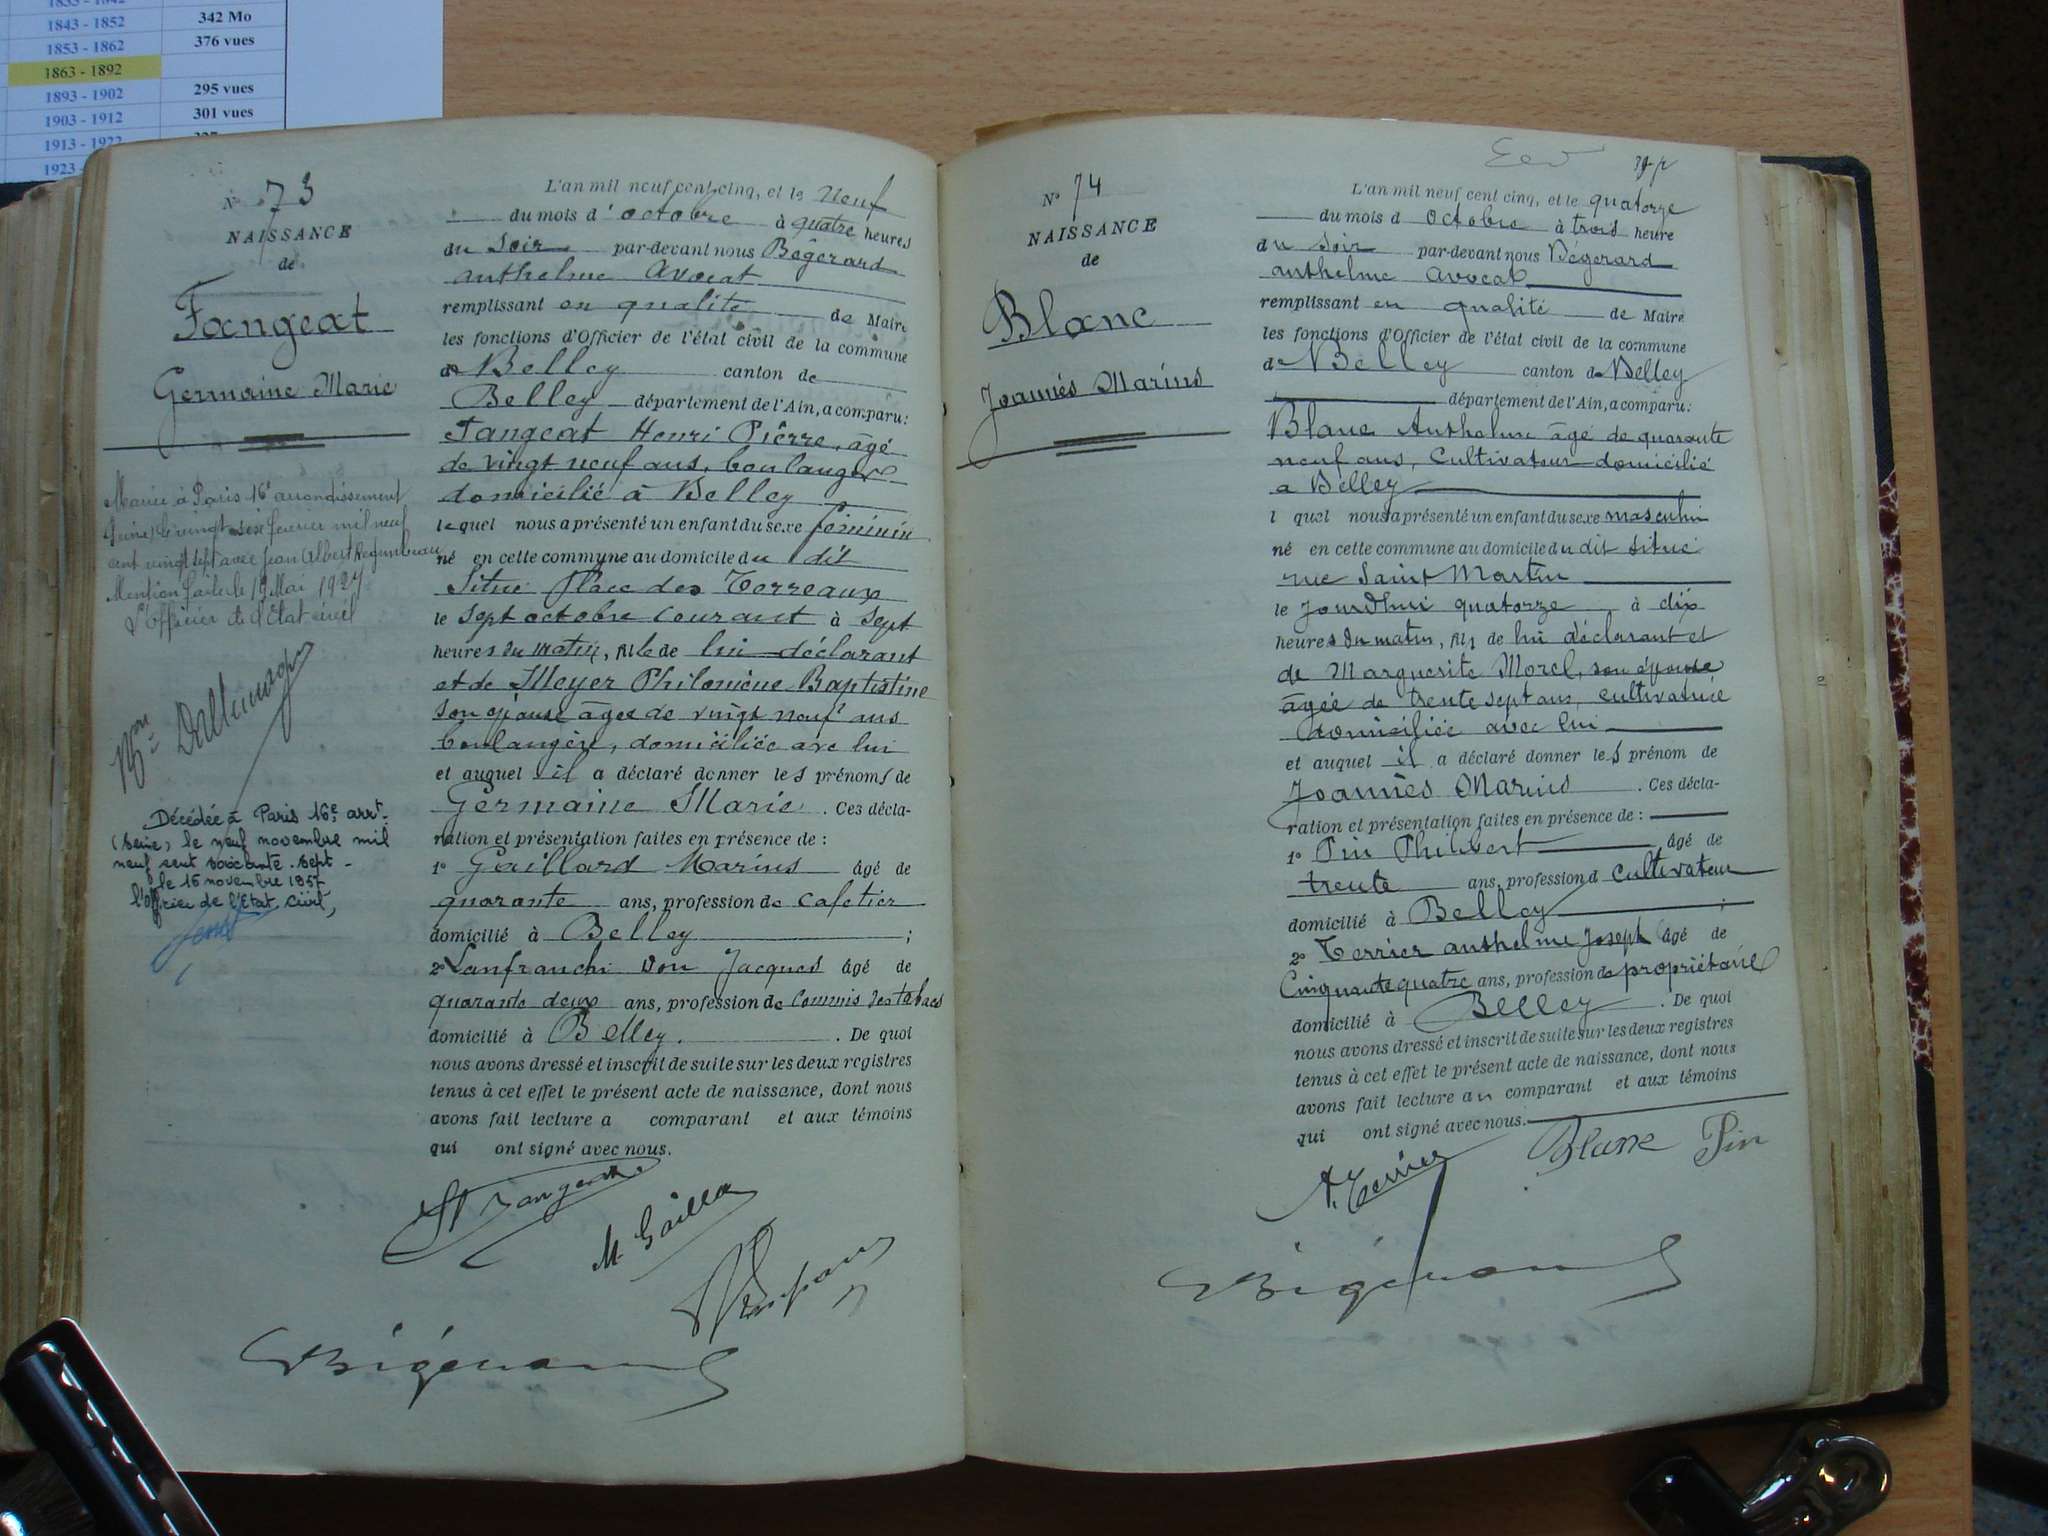 1843 - 1852 342 Mo
1853 - 1862 376 vues
1863 - 1892
1893 - 1902 295 vues
1903 - 1912 301 vues
1913 - 1922
1923 -
N° 73
NAISSANCE
de
Fangeat
Germaine Marie
Mariée à Paris 16e arrondissement
(Seine) le vingt six fevrier mil neuf
cent vingt sept avec Jean Albert
Mention faite le 19 Mai 1927
L'Officier de l'Etat civil
Décédée à Paris 16e arrt.
(Seine) le neuf novembre mil
neuf cent soixante-sept -
le 16 novembre
l'officier de l'Etat Civil,
L'an mil neuf cent cinq, et le Neuf
du mois d'octobre à quatre heures
du Soir par-devant nous Bégerard
anthelme Avocat
remplissant en qualité de Maire
les fonctions d'Officier de l'état civil de la commune
de Belley canton de
Belley département de l'Ain, a comparu:
Fangeat Henri Pierre, âgé
de vingt neuf ans, boulanger
domicilié à Belley
lequel nous a présenté un enfant du sexe féminin
né en cette commune au domicile du dit
Situé Place des Terreaux
le sept octobre courant à sept
heures du matin, fille de lui déclarant
et de Meyer Philomène Baptistine
son épouse âgée de vingt neuf ans
boulangère, domiciliée avec lui
et auquel il a déclaré donner les prénoms de
Germaine Marie. Ces décla-
ration et présentation faites en présence de :
1° Gaillard Marius âgé de
quarante ans, profession de cafetier
domicilié à Belley ;
2° Lanfranchi Don Jacques âgé de
quarante deux ans, profession de commis des tabacs
domicilié à Belley. De quoi
nous avons dressé et inscrit de suite sur les deux registres
tenus à cet effet le présent acte de naissance, dont nous
avons fait lecture a comparant et aux témoins
qui ont signé avec nous.
H Fangeat
M. Gaillard
Bégerard
N° 74
NAISSANCE
de
Blanc
Joannès Marius
L'an mil neuf cent cinq, et le quatorze
du mois d octobre à trois heure
du soir par-devant nous Bégerard
anthelme avocat
remplissant en qualité de Maire
les fonctions d'Officier de l'état civil de la commune
de Belley canton de Belley
département de l'Ain, a comparu:
Blanc Anthelme âgé de quarante
neuf ans, cultivateur domicilié
a Belley
l quel nous a présenté un enfant du sexe masculin
né en cette commune au domicile du dit situé
rue Saint Martin
le jourdhui quatorze à dix
heures du matin, fils de lui déclarant et
de Marguerite Morel, son épouse
âgée de trente sept ans, cultivatrice
domiciliée avec lui
et auquel il a déclaré donner les prénom de
Joannès Marius. Ces décla-
ration et présentation faites en présence de :
1° Pin Philibert âgé de
trente ans, profession d cultivateur
domicilié à Belley ;
2° Terrier anthelme Joseph âgé de
Cinquante quatre ans, profession de propriétaire
domicilié à Belley. De quoi
nous avons dressé et inscrit de suite sur les deux registres
tenus à cet effet le présent acte de naissance, dont nous
avons fait lecture au comparant et aux témoins
qui ont signé avec nous.
Blanc Pin
A. Terrier
Bégerard